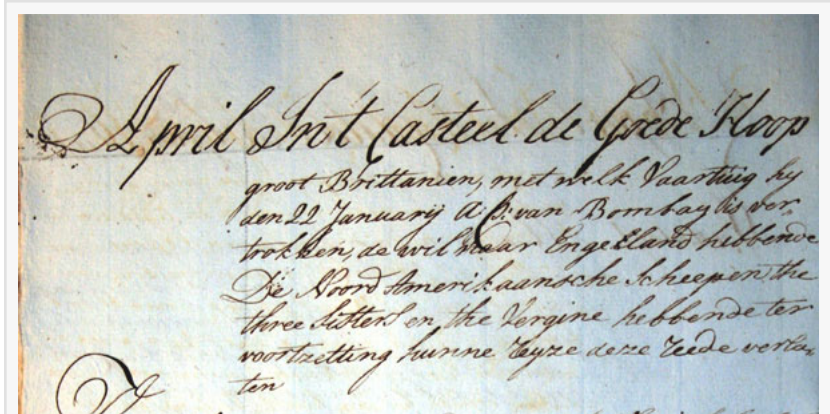 April In't Casteel de Goede Hoop
groot Brittanien, met welk Vaartuig hy
den 22 January A. P. van Bombay is ver-
trokken, de wil naar Engelland hebbende
De Noord Amerikaansche Scheepen the
three Sisters en the Vergine hebbende ter
voortzetting hunne Reyze deze Reede verla-
ten